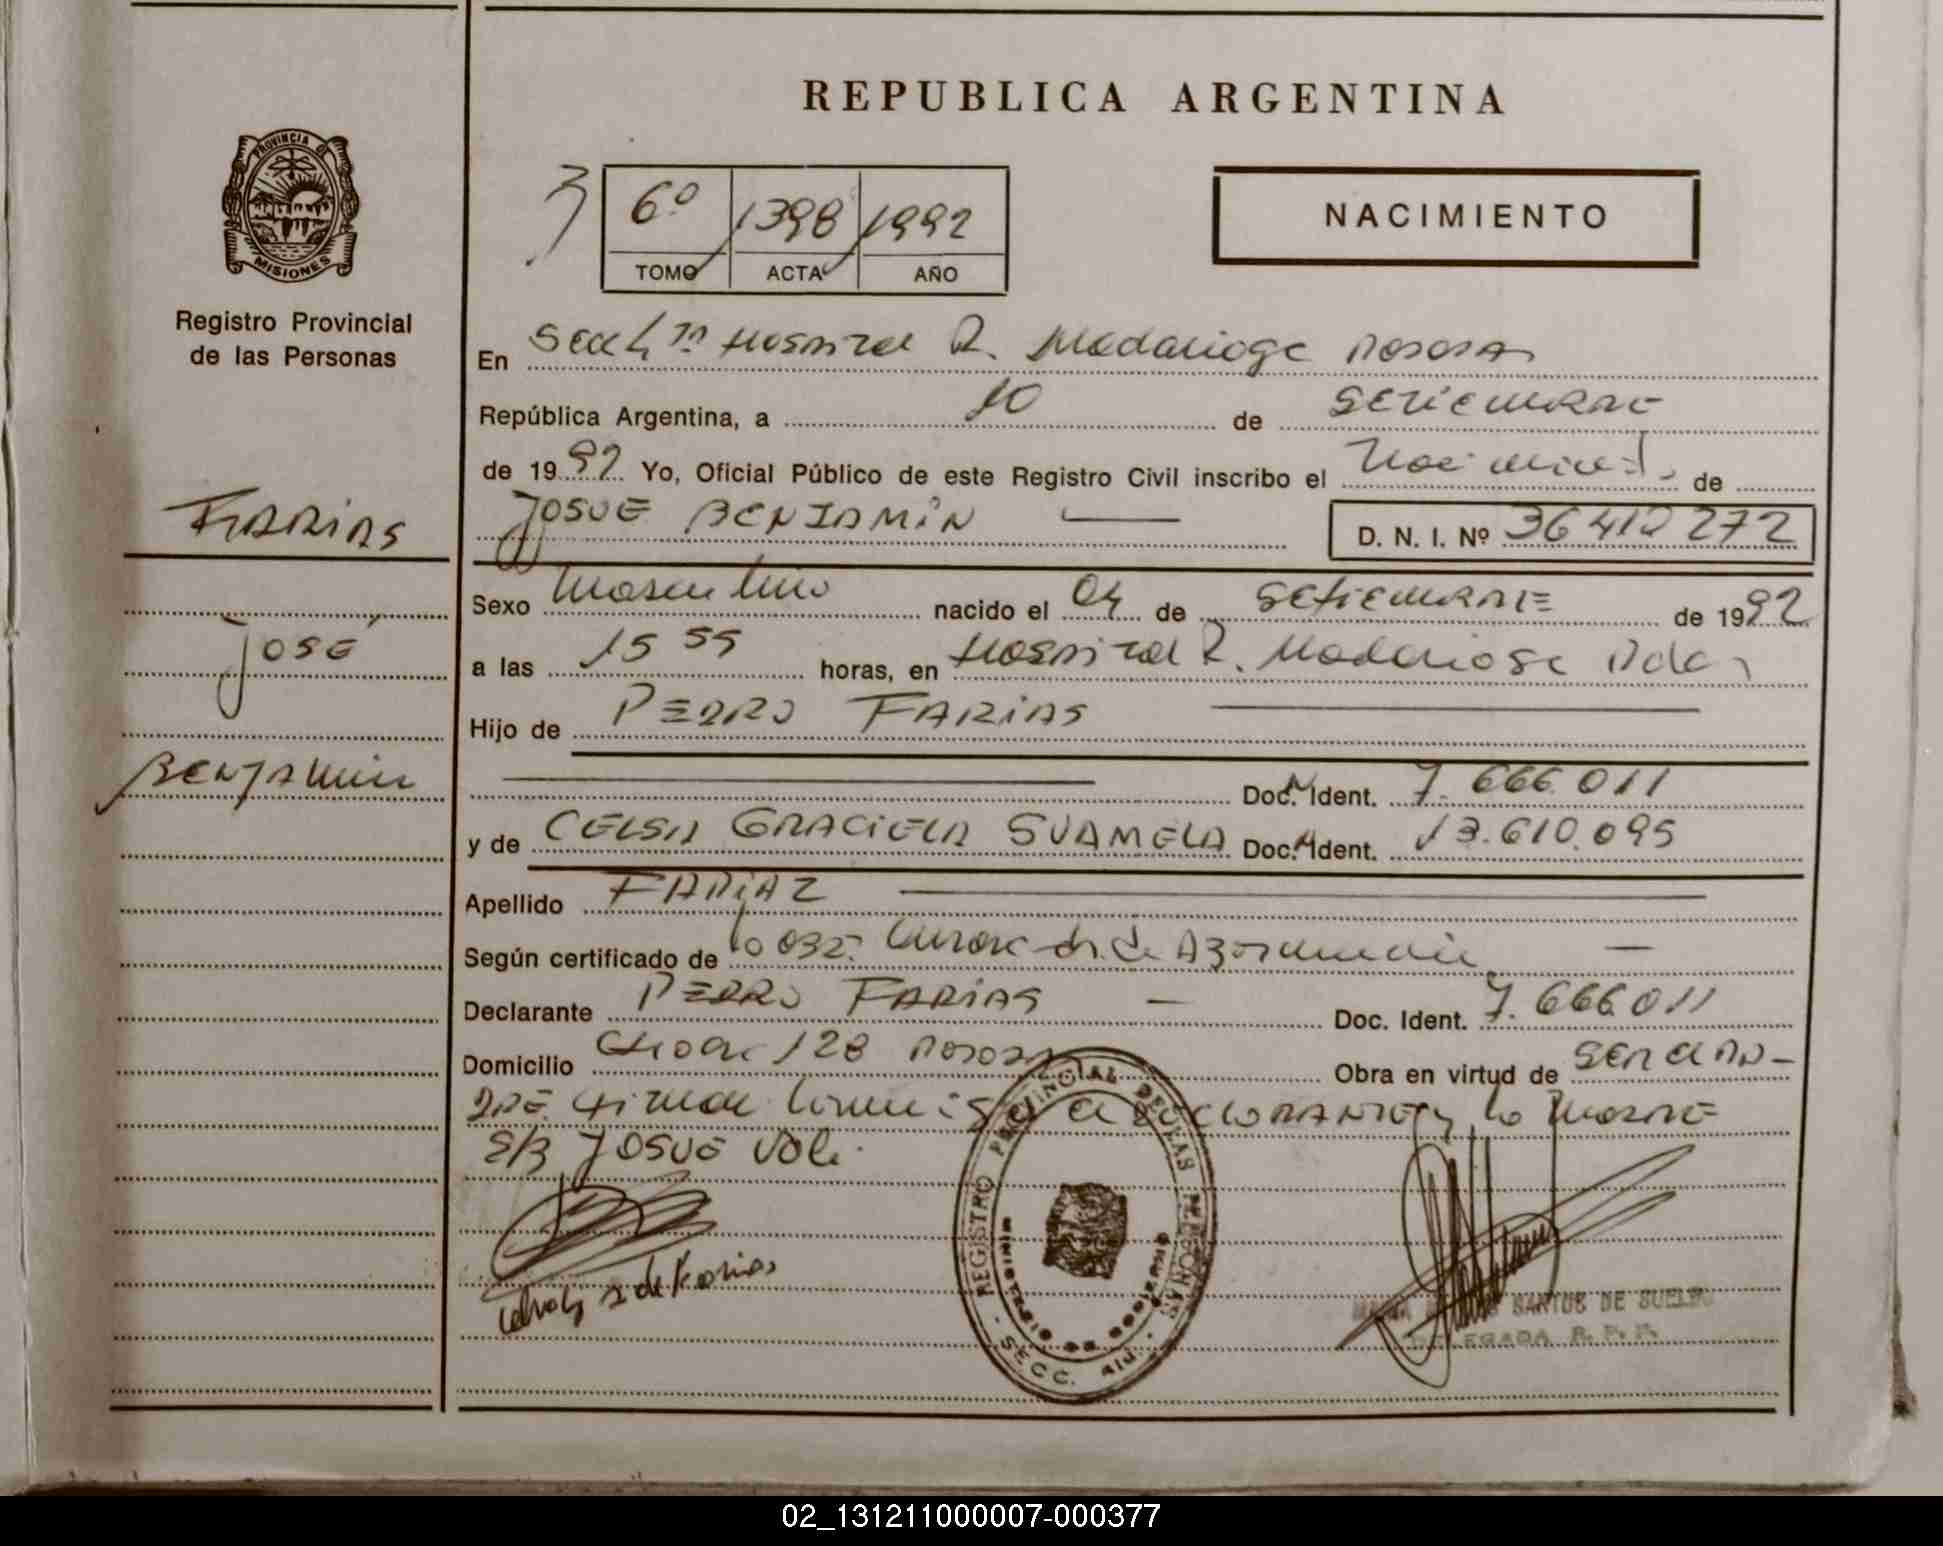 REPUBLICA ARGENTINA
PROVINCIA DE
MISIONES
Registro Provincial
de las Personas
6º 1398 1992
TOMO ACTA AÑO
NACIMIENTO
En Secc Hospital R. Madariaga Posadas
República Argentina, a 10 de SETIEMBRE
de 1992 Yo, Oficial Público de este Registro Civil inscribo el Nacimient. de
JOSUE BENJAMÍN D. N. I. Nº 36 410 272
Sexo Masculino nacido el 04 de SETIEMBRE de 1992
a las 15 55 horas, en Hospital R. Madariaga
Hijo de PEDRO FARIAS
Doc. Ident. 7.666.011
y de CELSA GRACIELA SUAMELA Doc. Ident. 13.610.095
Apellido FARIAZ
Según certificado de
Declarante PEDRO FARIAS Doc. Ident. 7.666.011
Domicilio 128 Posadas Obra en virtud de SER EL PA-
DRE. Firman el DECLARANTE y la MADRE
S/R JOSUE Vale.
de Farias
REGISTRO PROVINCIAL DE LAS PERSONAS
MINISTERIO DE GOBIERNO
SECC.
SANTOS DE SUELDO
DELEGADA R. P. P.
FARIAS
JOSÉ
BENJAMIN
02_131211000007-000377